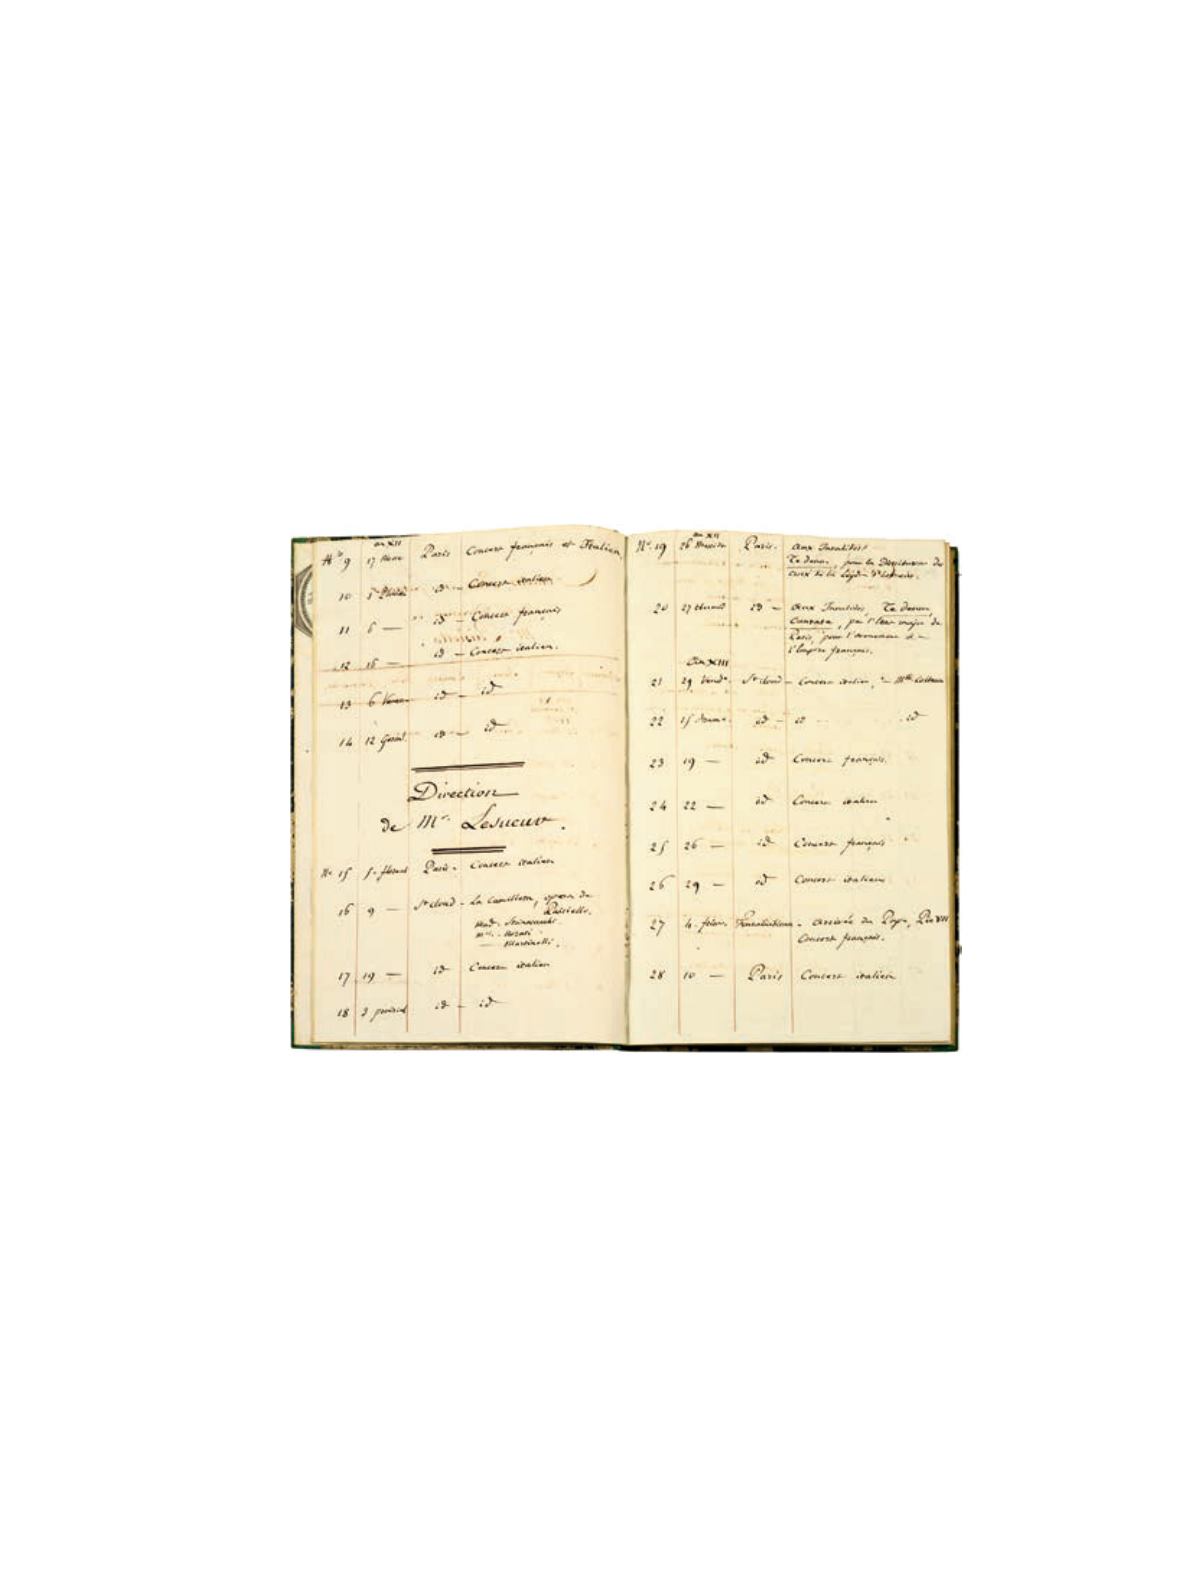 an XII
9 17 Paris Concert français et Italien,
10 id — Concert italien
11 6 — id — Concert français
12 16 — id — Concert italien.
13 6 id — id
14 12 id — id
Direction
de Mr. Lesueur.
No 15 floreal Paris - Concert italien
16 9 — St Cloud - La Camilla, opera de
Paisiello.
Mad. Strinasacchi
Martinelli.
17 19 — id Concert italien
18 3 prairial id — id
an XII
No. 19 26 Messidor Paris. aux Invalides,
Te deum, pour la Distribution des
croix de la Légion d'honneur.
20 27 id — aux Invalides, Te deum,
Cantate, par l'état major de
Paris, pour l'avénement à
l'Empire français.
an XIII
21 29 Vend. St Cloud — Concert italien,
22 15 id — id id
23 19 — id Concert français.
24 22 — id Concert italien
25 26 — id Concert français
26 29 — id Concert italien
27 4 frim. Fontainebleau - arrivée du Pape, Pie VII
Concert français.
28 10 — Paris Concert italien